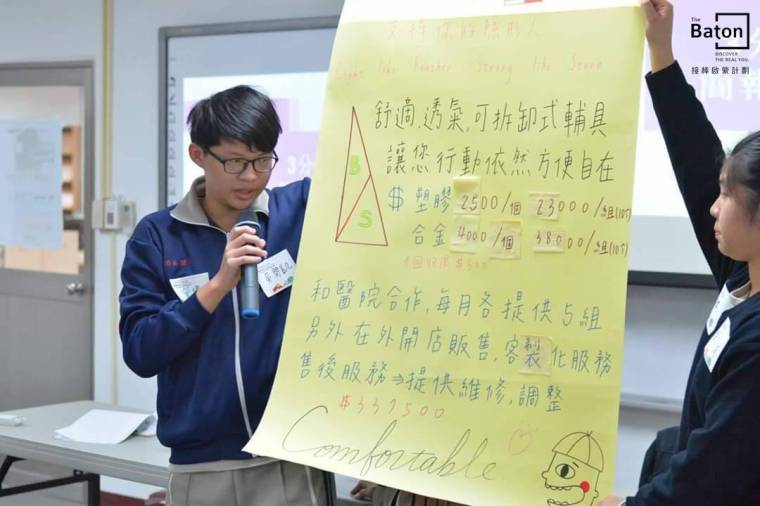 The
Baton
DISCOVER
THE REAL YOU.
接棒啟蒙計劃
支持你的隱形人
Light like Feather Strong like Stone
舒適,透氣,可拆卸式輔具
讓您行動依然方便自在
B
S
$ 塑膠 2500/個 23000/組(10T)
合金 4000/個 38000/組(10T)
和醫院合作,每月各提供5組
另外在外開店販售,客製化服務
售後服務⇒提供維修,調整
$337500
Comfortable
3分
簡報